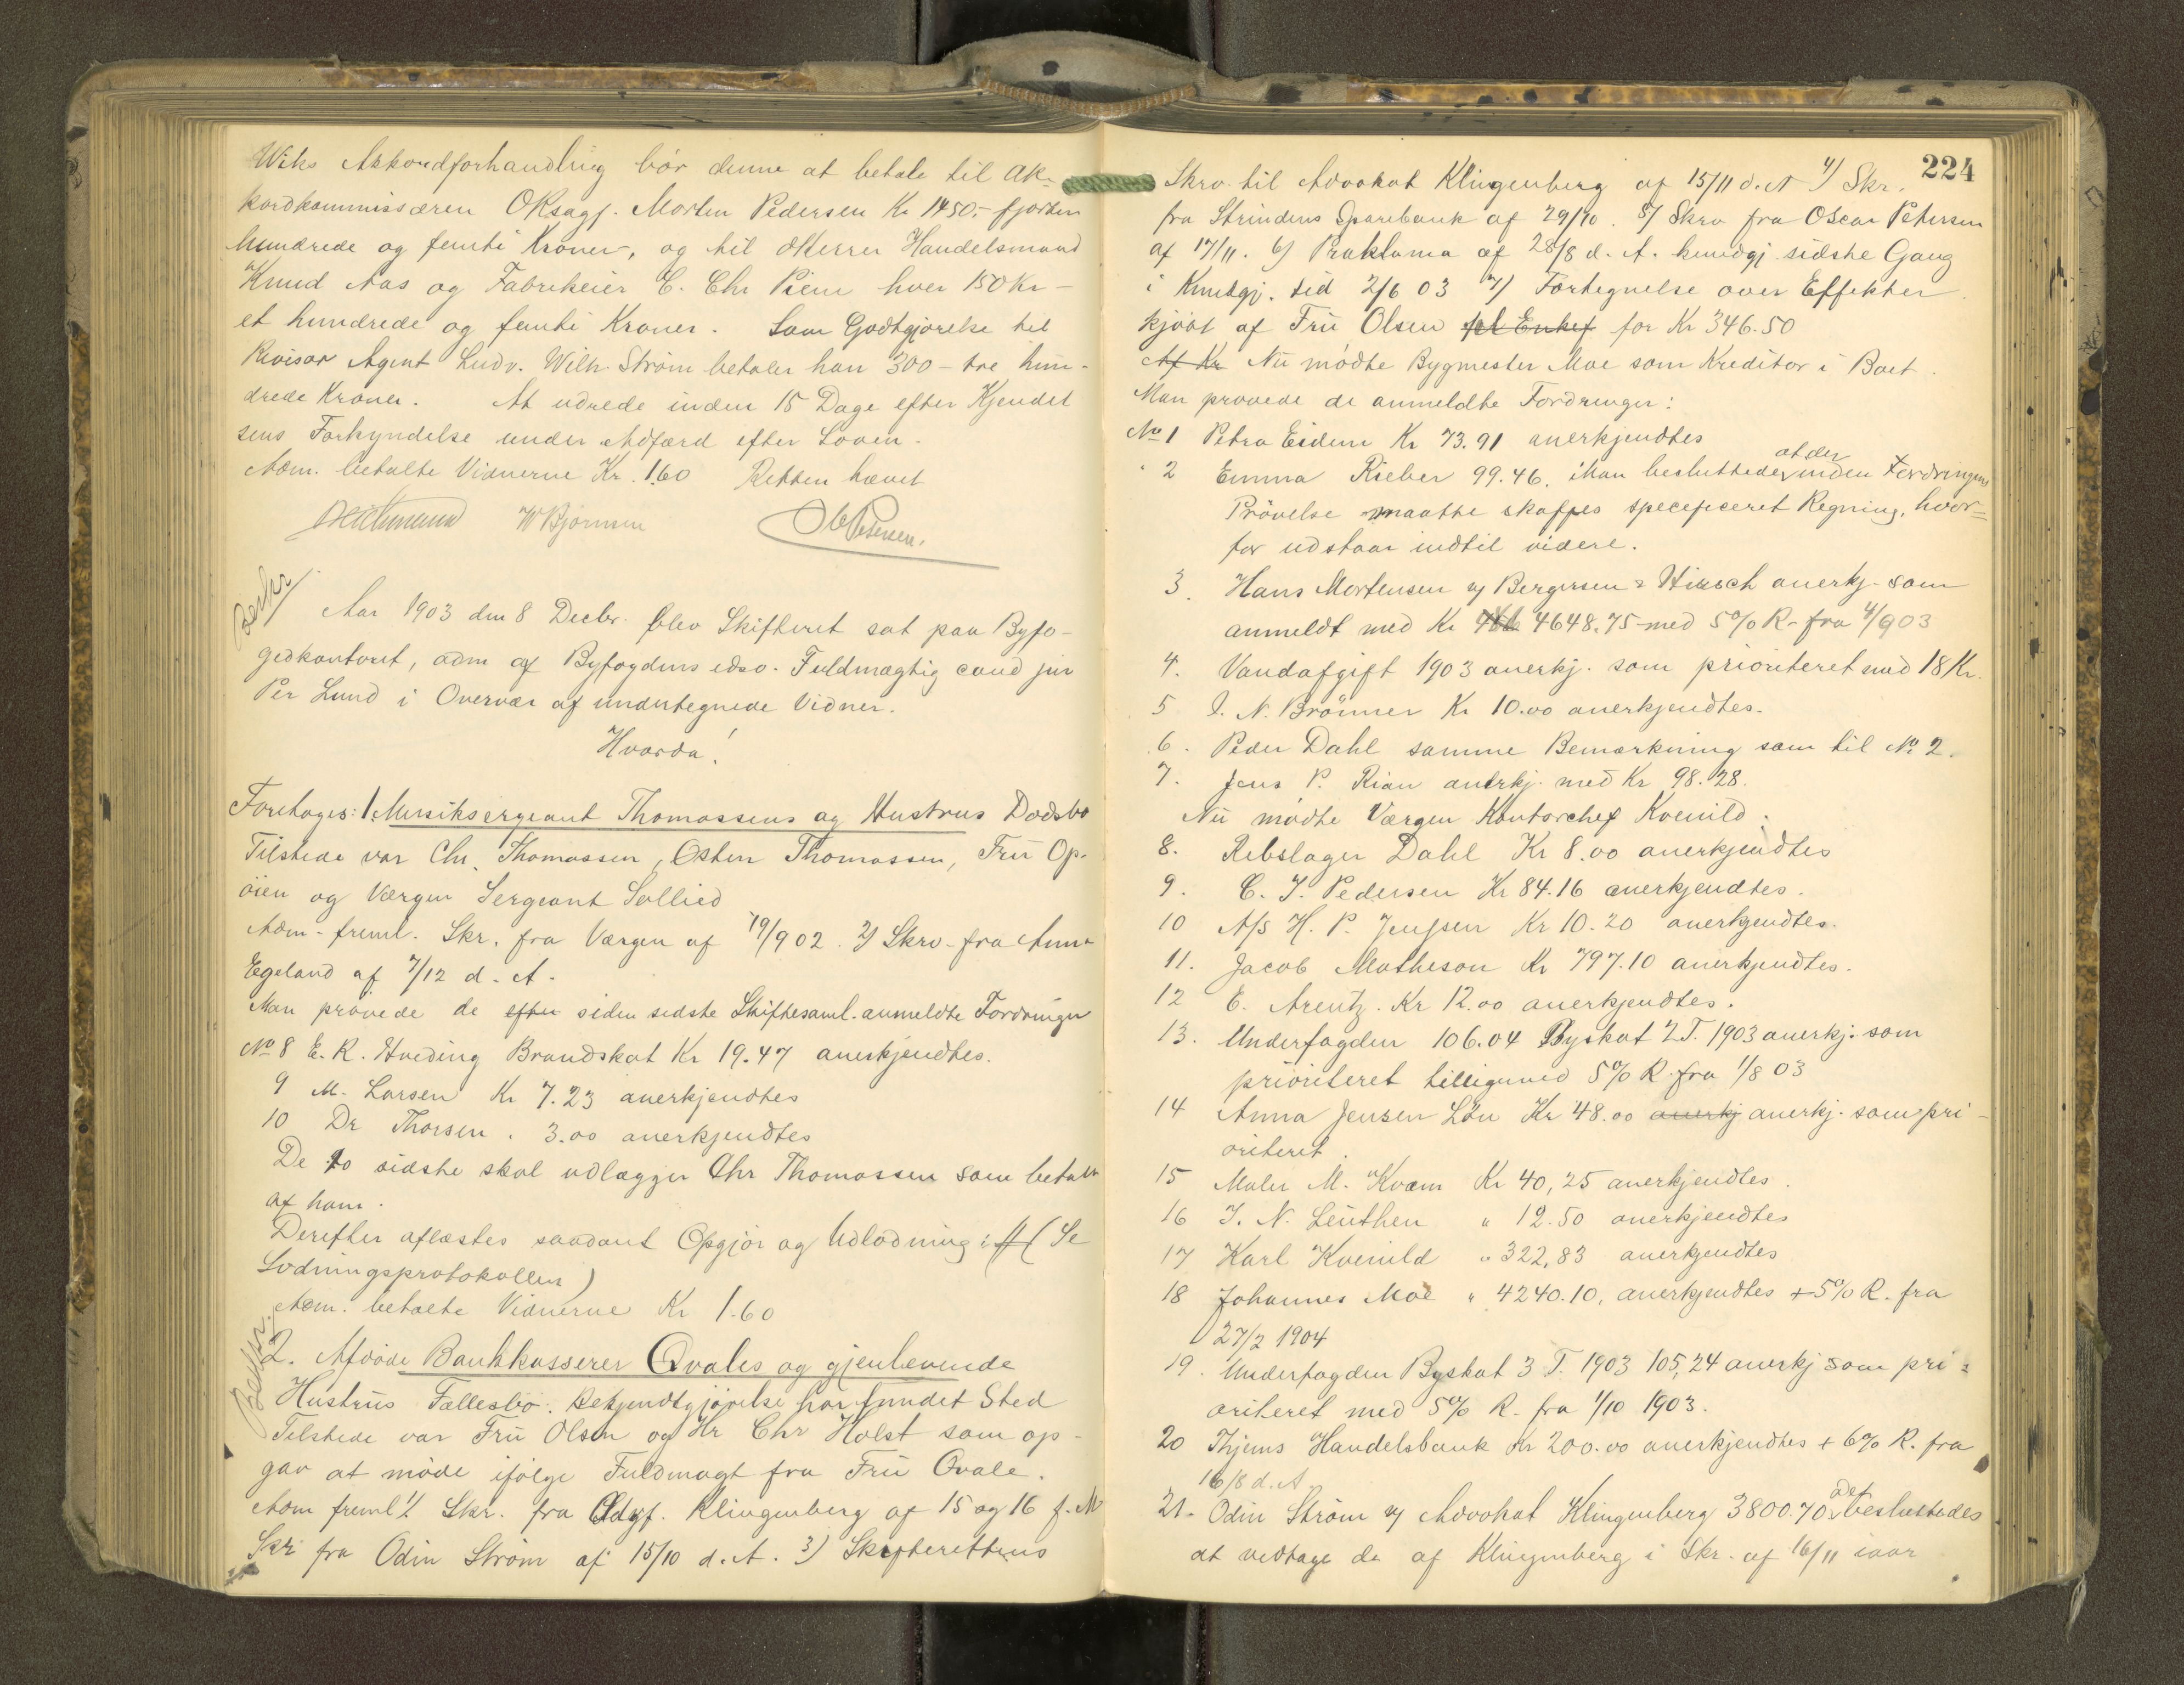 Wiks Akkordforhandling bør denne at betale til Ak-
kordkommissæren ORsagf. Morten Pedersen Kr 1450,- fjorten
hundrede og femti Kroner, og til Herrer Handelsmand
Knud Aas og Fabrikeier C. Chr Piene hver 150 Kr -
et hundrede og femti Kroner. Som Godtgjørelse til
Revisor Agent Ludv. Wilh. Strøm betaler han 300 - tre hun-
drede Kroner. At udrede inden 15 Dage efter Kjendel
sens Forkyndelse under Adfærd efter Loven.
Adm. betalte Vidnerne Kr. 1.60 Retten hævet
W Bjørnsen O Petersen.
Aar 1903 den 8 Decbr. blev Skifteret sat paa Byfo-
gedkontoret, adm af Byfogdens edsv. Fuldmægtig cand jur
Per Lund i Overvær af undertegnede Vidner.
Hvorda!
Foretages: 1. Musiksergeant Thomassens og Hustrus Dødsbo
Tilstede var Chr. Thomassen, Osten Thomassen, Fru Op-
øien og Værgen Sergeant Sollied
Adm. freml. Skr. fra Værgen af 19/9 02. 2) Skrv. fra Anna
Egeland af 7/12 d. A.
Man prøvede de efter siden sidste Skiftesaml. anmeldte Fordringer
No 8 E. R. Hveding Brandskat Kr 19.47 anerkjendtes.
9 M. Larsen Kr 7.23 anerkjendtes
10 Dr Thorsen . 3.00 anerkjendtes
De to sidste skal udlægges Chr Thomassen som betalt
af ham.
Derefter aflæstes saadant Opgjør og Udlodning: (Se
Lodningsprotokollen)
Adm. betalte Vidnerne Kr 1.60
2. Afdøde Bankkasserer Qvales og gjenlevende
Hustrus Fællesbo. Bekjendtgjørelse har fundet Sted
Tilstede var Fru Olsen og Hr Chr Holst som op-
gav at møde ifølge Fuldmagt fra Fru Qvale.
Adm freml 1) Skr. fra Klingenberg af 15 og 16 f. M
Skr fra Odin Strøm af 15/10 d. A. 3) Skifterettens
224
Skrv. til Advokat Klingenberg af 15/11 d. A 4) Skr.
fra Strindens Sparebank af 29/10. 5) Skrv fra Oscar Petersen
af 17/11. 6) Proklama af 28/8 d. A. kundgj sidste Gang
i Kundgj. tid 2/6 03 7) Fortegnelse over Effekter
kjøbt af Fru Olsen for Kr 346.50
Af Kr Nu mødte Bygmester Moe som Kreditor i Boet.
Man prøvede de anmeldte Fordringer:
No 1 Petra Eidem Kr 73.91 anerkjendtes
2 Emma Rieber 99.46. Man besluttede at der inden Fordringens
Prøvelse maatte skaffes specificeret Regning, hvor-
for udstaar indtil videre.
3. Hans Mortensen v/ Bergersen & Hirsch anerkj. som
anmeldt med Kr 4648.75 med 5% R. fra 4/9 03
4. Vandafgift 1903 anerkj. som prioriteret med 18 Kr.
5 I. N. Brønner Kr 10.00 anerkjendtes.
6. Peder Dahl samme Bemærkning som til No 2.
7. Jens P. Rian anerkj. med Kr 98.28.
Nu mødte Værgen Kontorchef Kvenild.
8. Rebslager Dahl Kr 8.00 anerkjendtes
9. C. J. Pedersen Kr 84.16 anerkjendtes.
10 A/S H. P. Jenssen Kr 10.20 anerkjendtes.
11. Jacob Matheson Kr 797.10 anerkjendtes.
12 E. Arentz. Kr 12.00 anerkjendtes.
13. Underfogden 106.04 Byskat 2 T. 1903 anerkj. som
prioriteret tilligemed 5% R. fra 1/8 03
14 Anna Jensen Løn Kr 48.00 anerkj anerkj. som pri-
oriteret.
15 Maler M. Kvam Kr 40,25 anerkjendtes.
16 J. N. Leuthen " 12.50 anerkjendtes
17 Karl Kvenild " 322,83 anerkjendtes
18 Johannes Moe " 4240.10, anerkjendtes + 5% R. fra
27/2 1904
19. Underfogden Byskat 3 T. 1903 105,24 anerkj som pri-
oriteret med 5% R. fra 1/10 1903.
20 Thjems Handelsbank Kr 200.00 anerkjendtes + 6% R. fra
16/8 d. A.
21. Odin Strøm v/ Advokat Klingenberg 3800.70 Det besluttedes
at vedtage de af Klingenberg i Skr. af 16/11 iaar